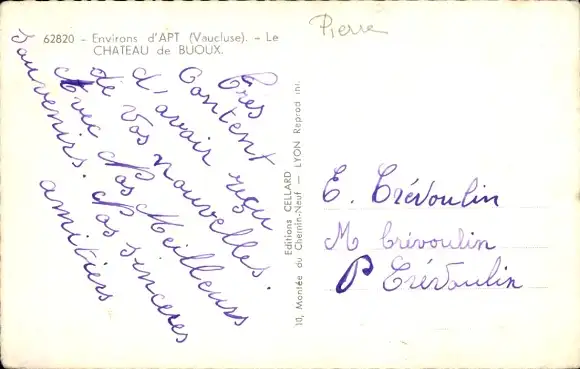 62820 - Environs d'APT (Vaucluse). - Le
CHATEAU de BUOUX.
Pierre
Très
Content
d'avoir reçu
de vos nouvelles.
Avec Nos Meilleurs
Souvenirs. Nos sinceres
amitiers
Editions CELLARD — LYON Reprod int.
10, Montée du Chemin-Neuf
E. Trévoulin
M Trévoulin
P Trévoulin